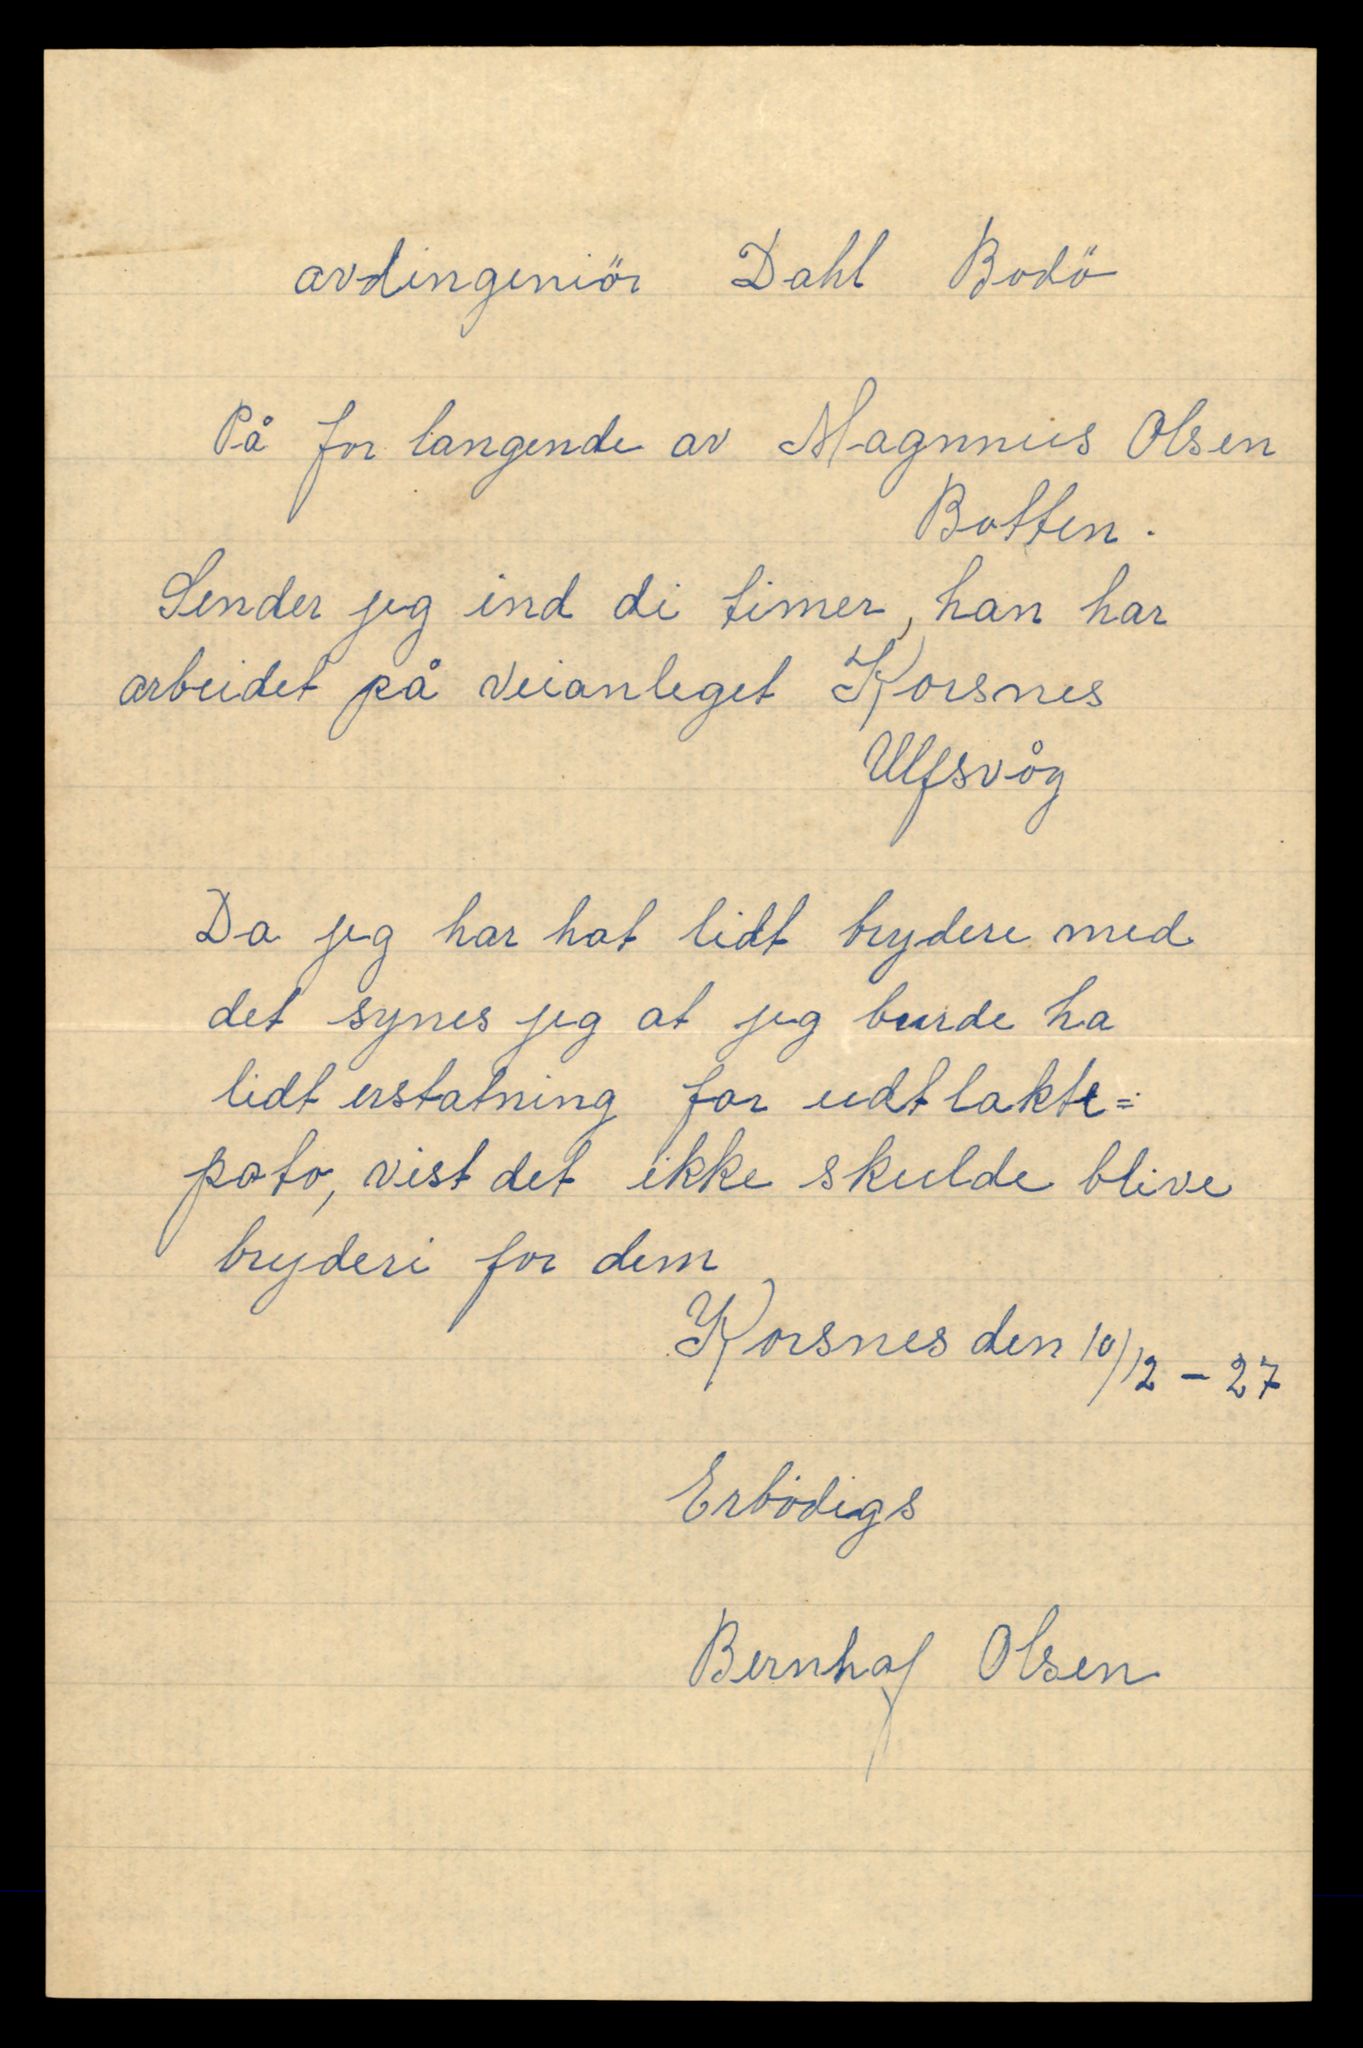 avdingeniör Dahl Bodö
På for langende av Magnnus Olsen
Botten.
Sender jeg ind di timer, han har
arbeidet på veianleget Korsnes
Ulfsvåg
Da jeg har hat lidt brydere med
det synes jeg at jeg burde ha
lidt erstatning for udtlakte=
poto, vist det ikke skulde blive
bryderi for dem
Korsnes den 10/12 - 27
Erbödigs
Bernhof Olsen